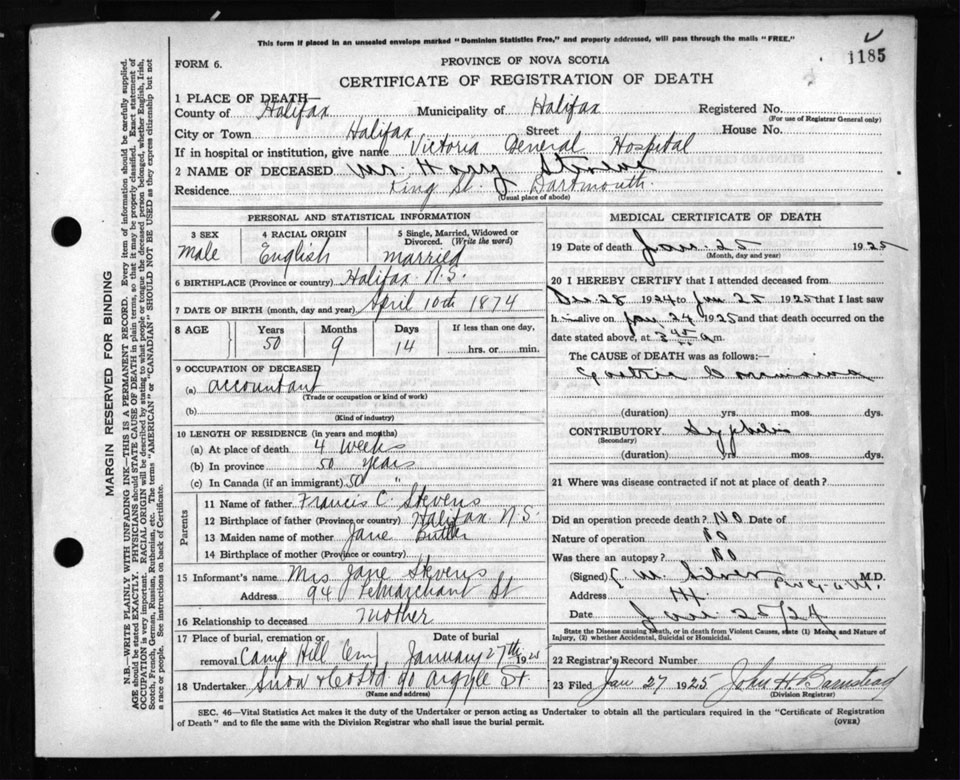 This form if placed in an unsealed envelope marked "Dominion Statistics Free," and properly addressed, will pass through the mails "FREE."
1185
FORM 6.
PROVINCE OF NOVA SCOTIA
CERTIFICATE OF REGISTRATION OF DEATH
1 PLACE OF DEATH—
County of Halifax Municipality of Halifax Registered No.
(For use of Registrar General only)
City or Town Halifax Street House No.
If in hospital or institution, give name Victoria General Hospital
2 NAME OF DECEASED Mr. Harry
Residence King St. Dartmouth.
(Usual place of abode)
PERSONAL AND STATISTICAL INFORMATION
3 SEX
Male
4 RACIAL ORIGIN
English
5 Single, Married, Widowed or Divorced. (Write the word)
married
6 BIRTHPLACE (Province or country) Halifax N.S.
7 DATE OF BIRTH (month, day and year) April 10th 1874
8 AGE Years Months Days If less than one day,
50 9 14 hrs. or min.
9 OCCUPATION OF DECEASED
(a) accountant
(Trade or occupation or kind of work)
(b)
(Kind of industry)
10 LENGTH OF RESIDENCE (in years and months)
(a) At place of death 4 weeks
(b) In province 50 years
(c) In Canada (if an immigrant) 50 "
Parents
11 Name of father Francis C. Stevens
12 Birthplace of father (Province or country) Halifax N.S.
13 Maiden name of mother Jane Butler
14 Birthplace of mother (Province or country)
15 Informant's name Mrs Jane Stevens
Address 94 LeMarchant St
16 Relationship to deceased mother
17 Place of burial, cremation or removal Camp Hill Cem
Date of burial
January 27th 1925
18 Undertaker Snow & Co Ltd 90 Argyle St.
(Name and address)
MEDICAL CERTIFICATE OF DEATH
19 Date of death Jan. 25 1925
(Month, day and year)
20 I HEREBY CERTIFY that I attended deceased from
Dec 28 1924 to Jan 25 1925 that I last saw
him alive on Jan 24 1925 and that death occurred on the
date stated above, at 3 45 a.m.
The CAUSE of DEATH was as follows:
(duration) yrs. mos. dys.
CONTRIBUTORY Syphilis
(Secondary)
(duration) yrs. mos. dys.
21 Where was disease contracted if not at place of death?
Did an operation precede death? No Date of
Nature of operation No
Was there an autopsy? No
(Signed) Silver M.D.
Address
Date Jan. 25/24
State the Disease causing Death, or in death from Violent Causes, state (1) Means and Nature of
Injury, (2) whether Accidental, Suicidal or Homicidal.
22 Registrar's Record Number
23 Filed Jan 27 1925 John H. Barnstead
(Division Registrar)
SEC. 46—Vital Statistics Act makes it the duty of the Undertaker or person acting as Undertaker to obtain all the particulars required in the "Certificate of Registration
of Death" and to file the same with the Division Registrar who shall issue the burial permit.
(OVER)
MARGIN RESERVED FOR BINDING
N.B.—WRITE PLAINLY WITH UNFADING INK—THIS IS A PERMANENT RECORD. Every item of information should be carefully supplied.
AGE should be stated EXACTLY. PHYSICIANS should STATE CAUSE OF DEATH in plain terms, so that it may be properly classified. Exact statement of
OCCUPATION is very important. RACIAL ORIGIN will be described by stating to what people or tongue the deceased person belonged, whether English, Irish,
Scotch, French, German, Russian, Ruthenian, etc. The terms "AMERICAN" or "CANADIAN" SHOULD NOT BE USED as they express citizenship but not
a race or people. See instructions on back of Certificate.